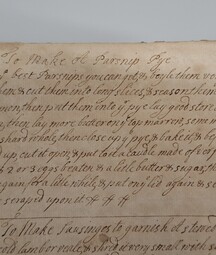 To Make A Parsnip Pye
best Parsnips you can get, & boyle them ve
& cut them into long slices, & season them
then put them into yr pye lay good stor
then lay more butter on yt top marrow, some m
hard whole, then close up yr pye & bake it, & by
up cut it open, & put to it a caudle made of
2 or 3 eggs beaten & a little butter & sugar, th
again, for a little while, & put on ye lid again & s
scraped upon it
To Make Sausinges to garnish
cold lamb or veale, & shred it very small with